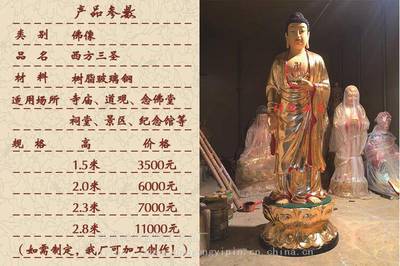 产品参数
类 别 佛像
品 名 西方三圣
材 料 树脂玻璃钢
适用场所 寺庙、道观、念佛堂
祠堂、景区、纪念馆等
规 格 高 价 格
1.5米 3500元
2.0米 6000元
2.3米 7000元
2.8米 11000元
(如需制定，我厂可加工制作！)